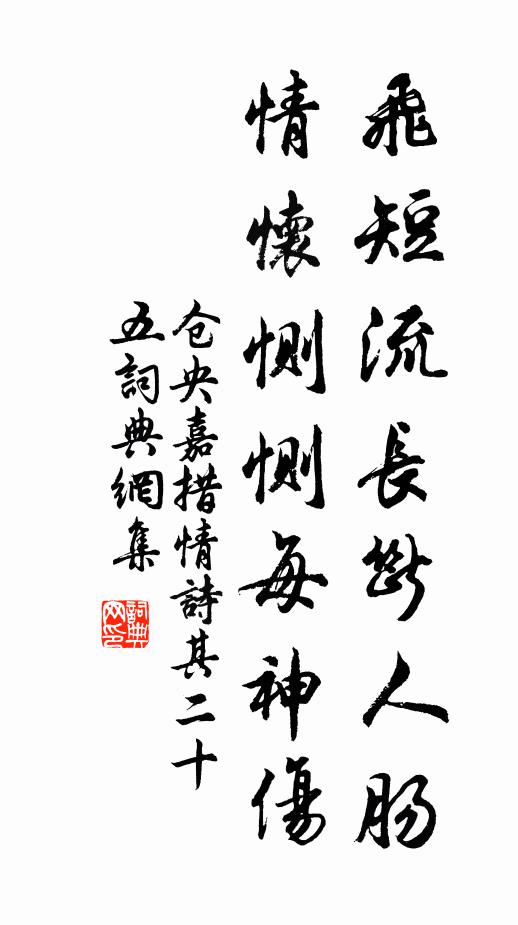 飛短流長斷人腸
情懷惻惻每神傷
仓央嘉措情詩其二十
五詞典網集
詞典
网印